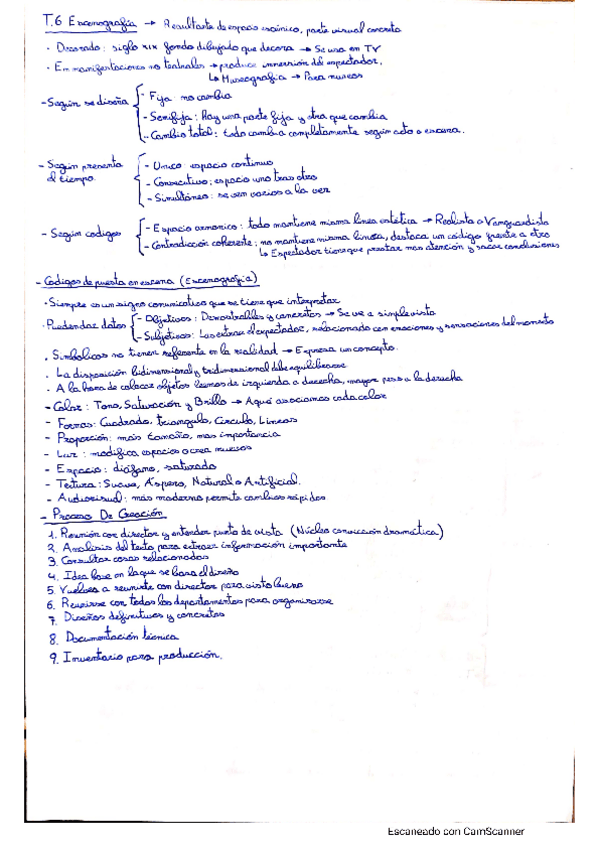 T.6 Escenografía → Resultante de espacio escénico, parte visual concreta
· Decorado: siglo XIX fondo dibujado que decora → Se usa en TV
· En manifestaciones no teatrales → produce inmersión del espectador.
↳ Museografía → Para museos
- Según se diseña { - Fija no cambia
- Semifija: Hay una parte fija y otra que cambia
- Cambio total: todo cambia completamente según acto o escena.
- Según presenta el tiempo { - Único espacio continuo
- Consecutivo: espacio uno tras otro
- Simultáneo: se ven varios a la vez
- Según códigos { - Espacio armonico: todo mantiene misma línea estética → Realista o Vanguardista
- Contradicción coherente: no mantiene misma línea, destaca un código frente a otro
↳ Espectador tiene que prestar más atención y sacar conclusiones
- Códigos de puesta en escena (Escenografía)
· Siempre es un signo comunicativo que se tiene que interpretar
· Pueden dar datos { - Objetivos: Demostrables y concretos → Se ve a simple vista
- Subjetivos: Los extrae el espectador, relacionado con emociones y sensaciones del momento
. Simbólicos no tienen referente en la realidad → Expresa un concepto.
. La disposición bidimensional y tridimensional debe equilibrarse
- A la hora de colocar objetos leemos de izquierda a derecha, mayor peso a la derecha
- Color: Tono, Saturación y Brillo → Aquí asociamos cada color
- Formas: Cuadrado, triángulo, Círculo, Líneas
- Proporción: más tamaño, mas importancia
- Luz: modifica espacios o crea nuevos
- Espacio: diáfano, saturado
- Textura: Suave, Áspero, Natural o Artificial.
- Audiovisual: más moderno permite cambios rápidos
- Proceso De Creación
1. Reunión con director y entender punto de vista (Núcleo convicción dramática)
2. Analisis del texto para extraer información importante
3. Consultar cosas relacionadas
4. Idea base en la que se basa el diseño
5. Vuelves a reunirte con director para visto bueno
6. Reunirse con todos los departamentos para organizarse
7. Diseños definitivos y concretos
8. Documentación técnica
9. Inventario para producción.
Escaneado con CamScanner